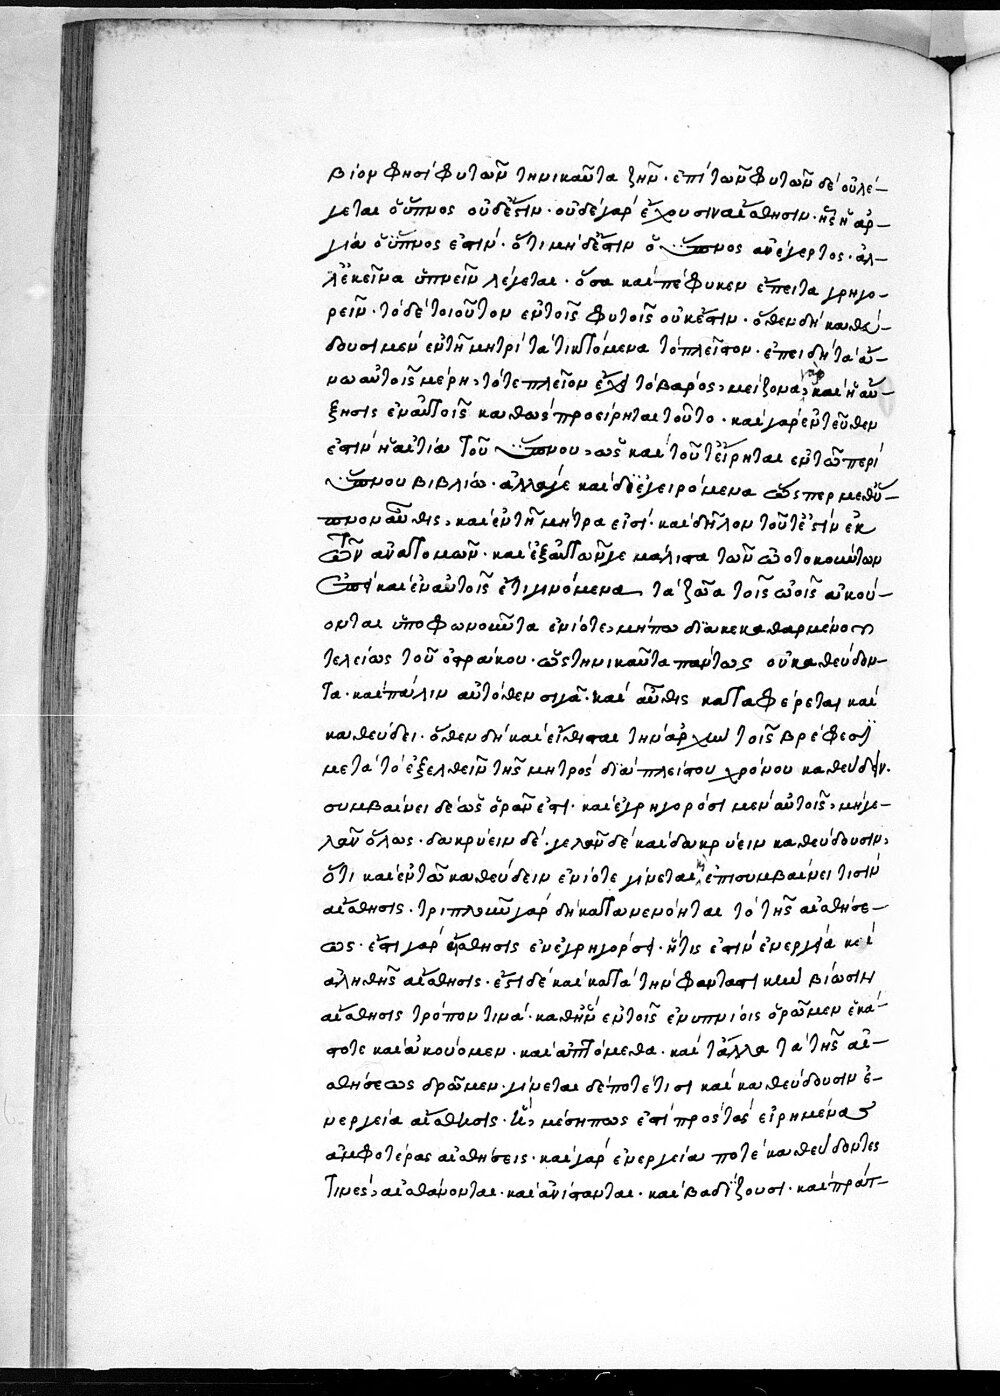 βίον φησὶ φυτῶν τηνικαῦτα ζῆν· ἐπὶ τῶν φυτῶν δὲ οὐ λέ-
γεται ὁ ὕπνος οὐδ' ἔστιν· οὐδὲ γὰρ ἔχουσιν αἴσθησιν· ἧς ἡ ἀρ-
γία ὁ ὕπνος ἐστίν· ὅτι μὴ δ' ἔστιν ὁ ὕπνος ἀνέγερτος· ἀλ-
λ' ἐκεῖνα ὑπνεῖν λέγεται· ὅσα καὶ πέφυκεν ἔπειτα γρηγο-
ρεῖν· τὸ δὲ τοιοῦτον ἐν τοῖς φυτοῖς οὐκ ἔστιν· ὅθεν δὴ καθεύ-
δουσι μὲν ἐν τῇ μητρὶ τὰ τικτόμενα τὸ πλεῖστον· ἐπειδὴ τὰ ἄ-
νω αὐτοῖς μέρη, τότε πλεῖον ἔχει τὸ βάρος, μείζονα γὰρ, καὶ ἡ αὔ-
ξησις ἐν αὐτοῖς καθὼς προείρηται τοῦτο· καὶ γὰρ ἐντεῦθεν
ἐστὶν ἡ αἰτία τοῦ ὕπνου, ὡς καὶ τοῦτ' εἴρηται ἐν τῷ περὶ
ὕπνου βιβλίῳ· ἀλλά γε καὶ διεγειρόμενα ὥσπερ μεθ' ὕ-
πνον αὖθις, καὶ ἐν τῇ μήτρα εἰσί· καὶ δῆλον τοῦτ' ἐστὶν ἐκ
τῶν ἀνατομῶν· καὶ ἐξ αὐτῶν γε μάλιστα τῶν ὠοτοκούντων
καὶ ἐν αὐτοῖς ἔτι γινόμενα τὰ ζῶα τοῖς ὠοῖς ἀκού-
ονται ὑποφωνοῦντα ἐνίοτε, μήπω διακεκαθαρμένου
τελείως τοῦ ὀστράκου· ὡς τηνικαῦτα πάντως οὐ καθεύδον-
τα· καὶ πάλιν αὐτόθεν σιγᾶ· καὶ αὖθις καταφέρεται καὶ
καθεύδει· ὅθεν δὴ καὶ εἴθισται τὴν ἀρχὴν τοῖς βρέφεσι
μετὰ τὸ ἐξελθεῖν τῆς μητρὸς διὰ πλείστου χρόνου καθεύδειν.
συμβαίνει δὲ ὡς ὁρᾶν ἐστι· καὶ ἐγρηγορόσι μὲν αὐτοῖς, μὴ γε-
λᾶν ὅλως· δακρύειν δέ· γελᾶν δὲ καὶ δακρύειν καθεύδουσιν,
ὅτι καὶ ἐν τῷ καθεύδειν ἐνίοτε γίνεται καὶ ἐπισυμβαίνει τισὶν
αἴσθησις· τριπλοῦν γὰρ δὴ κατανενόηται τὸ τῆς αἰσθήσε-
ως· ἔστι γὰρ αἴσθησις ἐν ἐγρηγόρσει· ἥτις ἐστὶν ἐνεργεία καὶ
ἀληθὴς αἴσθησις· ἔστι δὲ καὶ κατὰ τὴν φανταστικὴν βίωσιν
αἴσθησις τρόπον τινά· καθ' ἣν ἐν τοῖς ἐνυπνίοις ὁρῶμεν ἑκά-
στοτε καὶ ἀκούομεν· καὶ ἁπτόμεθα· καὶ τἄλλα τὰ τῆς αἰ-
σθήσεως δρῶμεν· γίνεται δέ ποτ' ἔτι καὶ καθεύδουσιν ἐ-
νεργεία αἴσθησις· μέση πως ἐστὶ πρὸς τὰς εἰρημένας
ἀμφοτέρας αἰσθήσεις· καὶ γὰρ ἐνεργεία ποτὲ καθεύδοντες
τινὲς, αἰσθάνονται· καὶ ἀνίστανται· καὶ βαδίζουσι· καὶ πράτ-